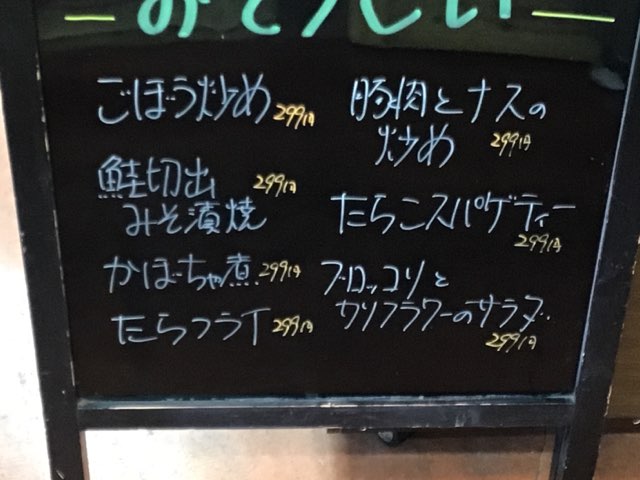 おそうざい
ごぼう炒め 299円
鮭切出 299円
みそ漬焼
かぼちゃ煮 299円
たらフライ 299円
豚肉とナスの
炒め 299円
たらこスパゲティー
299円
ブロッコリと
カリフラワーのサラダ
299円